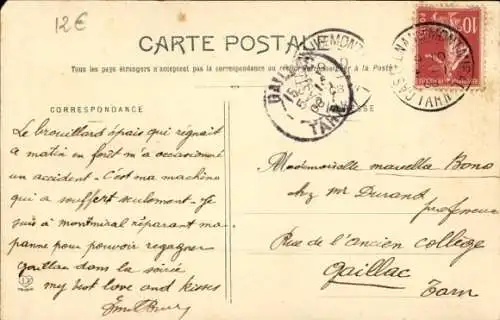 12€
CARTE POSTALE
Tous les pays étrangers n'acceptent pas la correspondance au recto
à la Poste
CORRESPONDANCE
Le brouillard épais qui régnait
ce matin en forêt m'a occasionné
un accident - C'est ma machine
qui a souffert seulement - Je
suis à Montmiral réparant ma
panne pour pouvoir regagner
dans la soirée
my best love and kisses
10
CASTELNAU DE MONTMIRAL
TARN
GAILLAC
TARN
Mademoiselle Marcella Bono
chez Mr Durand
professeur
Rue de l'Ancien Collège
Gaillac
Tarn